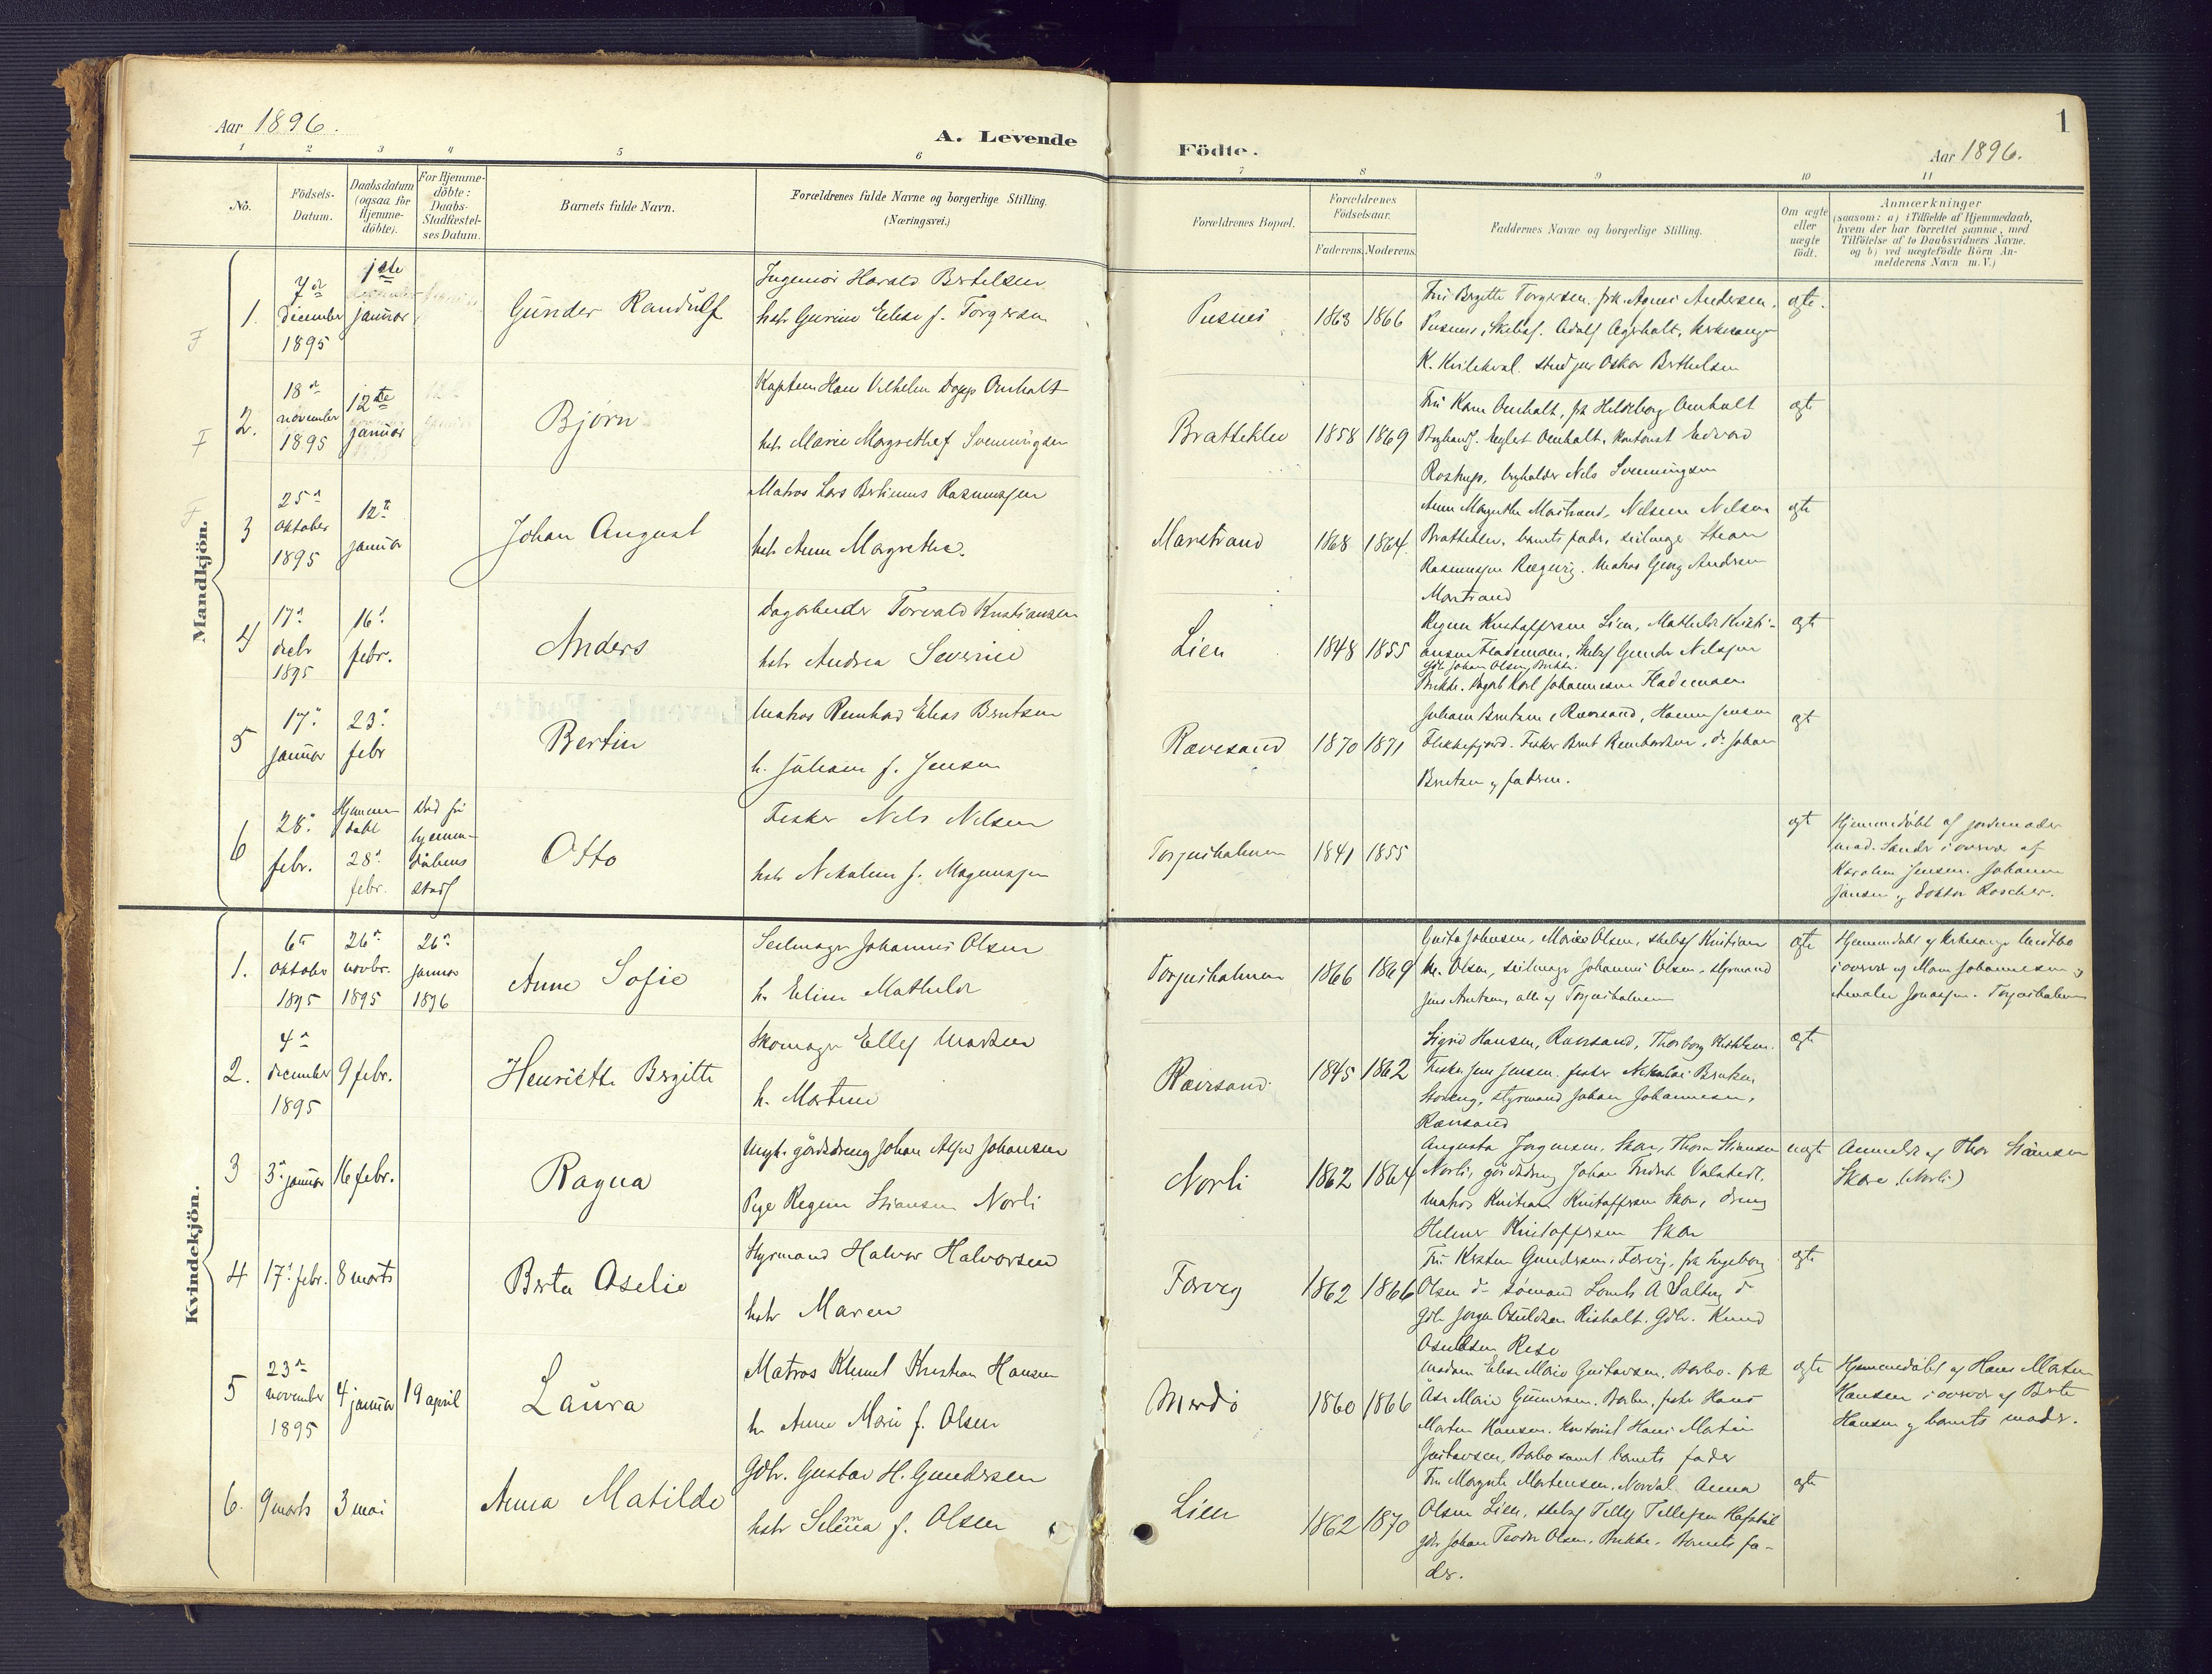 Aar 1896.
A. Levende
Födte.
Aar 1896.
1
1 2 3 4 5 6 7 8 9 10 11
No.
Födsels-
Datum.
Daabsdatum
(ogsaa for
Hjemme-
döbte).
For Hjemme-
döbte:
Daabs-
Stadfæstel-
ses Datum.
Barnets fulde Navn.
Forældrenes fulde Navne og borgerlige Stilling.
(Næringsvei.)
Forældrenes Bopæl.
Forældrenes
Födselsaar.
Faderens. Moderens.
Faddernes Navne og borgerlige Stilling.
Om ægte
eller
uægte
födt.
Anmærkninger
(saasom: a) i Tilfælde af Hjemmedaab,
hvem der har forrettet samme, med
Tilföielse af to Daabsvidners Navne.
og b) ved uægtefödte Börn An-
melderens Navn m. V.)
Mandkjön.
1. 7de december 1895
1ste januar
Gunder Randulf
Ingeniör Harald Bertelsen
hstr Gurine Elise f. Torgersen
Pusnes
1863 1866
Fru Birgitte Torgersen, frk. Agnes Andersen,
Pusnes, Skibsf. Adolf Agerholt, kirkesanger
K. Kvileheval. stud jur Oskar Berthelsen
ægte.
2. 18de november 1895
12te januar
Björn
Kaptein Hans Vilhelm Dopp Omholt
hstr. Marie Margrethe f Svenningsen
Brattekleiv
1858 1869
Fru Karen Omholt, frk Hildeborg Omholt
Omholt, kontorist Edvard
Nils Svenningsen
ægte
3 25de oktober 1895
12te januar
Johan August
Matros Lars Bertinius Rasmussen
hstr. Anne Margrethe.
Marstrand
1868 1864.
Anne Margrethe Marstrand, Nelsine Nilsen
Brattekleiv, barnets fader, seilmager Stean
Rasmussen Rægevig. Matros Georg Andersen
Marstrand
ægte
4 17de decbr 1895
16de febr.
Anders
Dagarbeider Torvald Kristiansen
hstr Andrea Severine
Lien
1848 1855
Regine Kristoffersen Lien, Mathilde Kristi-
ansen Flademoen, Skibsf Gunder Nilssen
Gdb. Johan Olsen, Brekke.
Brekke. Dagarb Karl Johannesen Flademoen
ægte
5 17de januar
23de febr
Bertin
Matros Reinhard Elias Berntsen
h. Juliane f. Jensen
Rævesand
1870 1871
Juliane Berntsen, Rævesand, Hanna Jensen
Flekkefjord. Fisker Bernt Reinhardsen, do Johan
Berntsen og faderen.
ægte
6 28de febr.
Hjemme-
döbt
28de
febr.
död för
hjemme-
daabens
stadf
Otto
Fisker Nils Nilsen
hstr Nikoline f. Magnussen
Torjusholmen
1841 1855
ægte
Hjemmedöbt af jordemoder
mad. Sander i overvær af
Karoline Jensen. Johanne
Jensen og Doktor Roscher.
Kvindekjön.
1. 6te oktober 1895
26de novbr. 1895
26de januar 1896
Anne Sofie
Seilmager Johannes Olsen
h. Elise Mathilde
Torjusholmen
1866 1869
Josefa Johnsen, Marie Olsen, skibsf Kristian
M. Olsen, seilmager Johannes Olsen, styrmand
Jens Arntsen, alle af Torjusholmen
ægte
Hjemmedöbt af kirkesanger
i overvær af Maren Johannesen og
Amalie Jonassen. Torjusholmen
2. 4de december 1895
9 febr.
Henriette Birgitte
Skomager Ellef Madsen
h. Martine
Rævesand
1845 1862
Sigrid Hansen, Rævesand, Thorborg
Fisker Jens Jensen, fisker Nikolai Berntsen
styrmand Johan Johannesen,
Rævesand
ægte
3 3de januar
16 febr.
Ragna
Ungk. gårdsdreng Johan Alfred Johansen
Pige Regine Stiansen Norli
Norli
1862 1864
Augusta Jörgensen, Skare, Thora Stiansen
Norli, gårdsdreng Johan
matros Kristian Kristoffersen Skare, dreng
Helmer Kristoffersen Skare
uægte
Anmeldt af Thor Stiansen
Skare (Norli)
4 17de febr.
8 marts
Berta Aselie
Styrmand Halvor Halvorsen
hstr Maren
Færvig
1862 1866
Fru Kirsten Gundersen, Færvig, frk Ingeborg
Olsen do sömand A Salting do
Gdb. Jörgen Osuldsen Risholt. Gdbr. Knud
Osuldsen Rise
ægte
5 23de november 1895
4 januar
19 april
Laura
Matros Klemet Kristian Hansen
h. Anne Marie f. Olsen
Merdö
1860 1866
Madam Elise Marie Gustavsen, Barbo. frk
Åse Marie Gundersen, Barbo, fisker Hans
Morten Hansen. kontorist Hans Martin
Gustavsen, Barbo samt barnets fader
ægte
Hjemmedöbt af Hans Morten
Hansen i overvær af Berte
Hansen og barnets moder.
6. 9 marts
3 mai
Anna Matilde
Gdbr. Gustav H. Gundersen
hstr Selma f. Olsen
Lien
1862 1870
Fru Margrete Mortensen, Nordal. Anna
Olsen Lien, skibsf Tellef Tellefsen
gdbr Johan Teodor Olsen, Brekke, Barnets fa-
der.
ægte